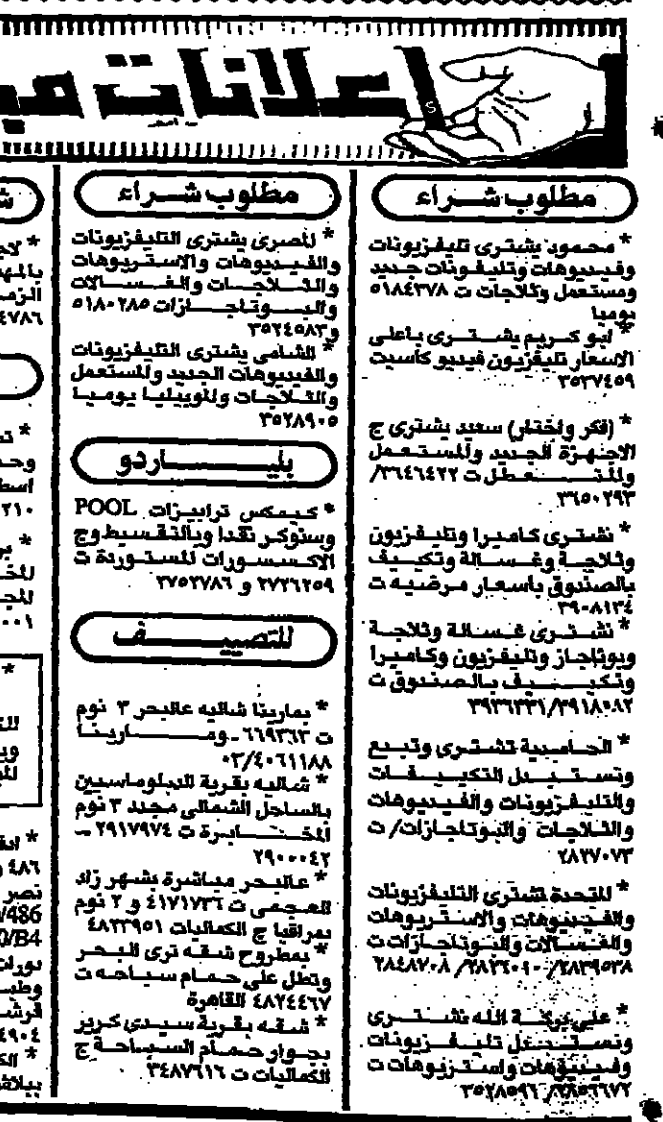 إعلانات مبـ
مطلوب شــراء
* محمود يشترى تليفزيونات
وفيديوهات وتليفونات جديد
ومستعمل وثلاجات ت ٥١٨٤٣٧٨
يوميا
* ابو كريم يشــترى باعلى
الاسعار تليفزيون فيديو كاسيت
٣٥٣٧٤٥٩
* (فكر واختار) سعيد يشترى ج
الاجهزة الجديد والمستعمل
والمتــعطل ت ٣٦٤٦٤٢٢/
٣٦٥٠٢٩٣
* نشترى كاميرا وتليفزيون
وثلاجة وغسالة وتكييف
بالصندوق باسعار مرضيه ت
٣٩٠٨١٣٤
* نشــترى غسالة وثلاجة
وبوتاجاز وتليفزيون وكاميرا
وتكييف بالصندوق ت
٣٩٣٦٣٣١/٣٩١٨٠٨٢
* الحامدية تشترى وتبيع
وتستبدل التكييفات
والتليفزيونات والفيديوهات
والثلاجات والبوتاجازات/ ت
٢٨٢٧٠٧٣
* المتحدة تشترى التليفزيونات
والفيديوهات والاستريوهات
والغسالات والبوتاجازات ت
٢٨٣٩٥٣٨/ ٢٨٢٦٠١٠/ ٢٨٤٨٧٠٨
* على بركة الله نشــترى
ونستبدل تليفزيونات
وفيديوهات واستريوهات ت
٢٨٥٦٦٧٢/ ٣٥٢٨٥٩٦
مطلوب شــراء
* المصرى يشترى التليفزيونات
والفيديوهات والاستريوهات
والثــلاجــات والغــســالات
والبــوتاجــازات ٥١٨٠٢٨٥
و٣٥٢٤٥٨٣
* الشامى يشترى التليفزيونات
والفيديوهات الجديد والمستعمل
والثلاجات والموبيليا يوميا
٣٥٢٨٩٠٥
بليــــاردو
* كيمكس ترابيزات POOL
وسنوكر نقدا وبالتقسيط وج
الاكسسورات المستوردة ت
٢٧٢٦٢٥٩ و ٣٧٥٢٧٨٦
للتصييــــف
* بمارينا شاليه عالبحر ٣ نوم
ت ٦٦٩٣٦٣ ـ ومــــارينــا
٠٣/٤٠٦١١٨٨
* شاليه بقرية الدبلوماسيين
بالساحل الشمالى مجيد ٣ نوم
المخــابرة ت ٢٩١٧٩٧٤ ــ
٢٩٠٠٠٤٢
* عالبحر مباشرة بشهر زاد
العجمى ت ٤١٧١٧٣٦ و ٢ نوم
بمراقيا ج الكماليات ٤٨٢٣٩٥١
* بمطروح شقه ترى البحر
وتطل على حمام سباحه ت
٤٨٢٤٤٦٧ القاهرة
* شقه بقرية سيدى كرير
بجوار حمام السباحة ج
الكماليات ت ٣٤٨٧٦١٦